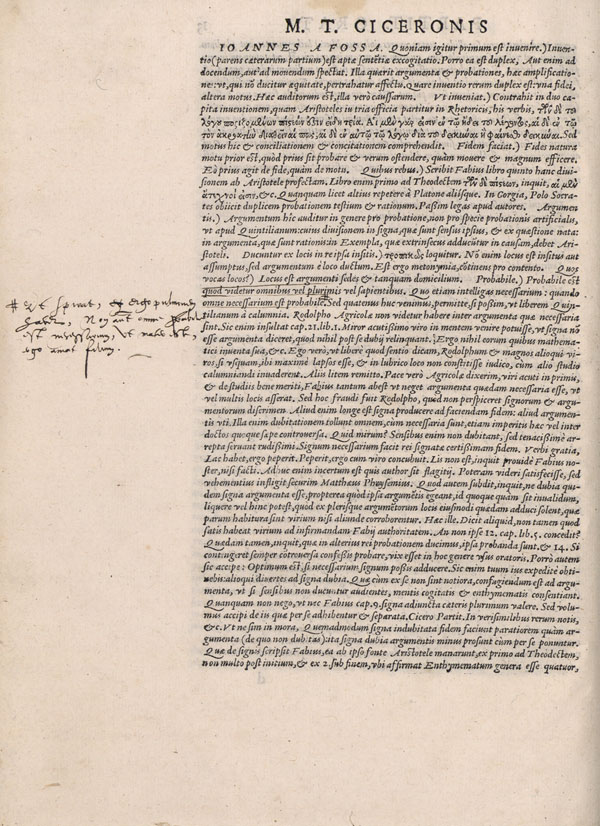 M. T. CICERONIS
IOANNES A FOSSA. Quoniam igitur primum est inuenire.) Inuen-
tio (parens cæterarum partium) est aptæ sentẽtiæ excogitatio. Porro ea est duplex, Aut enim ad
docendum, aut ad mouendum spectat. Illa quærit argumenta & probationes, hæc amplificatio-
ne: vt, qui nõ ducitur æquitate, pertrahatur affectu. Quare inuentio rerum duplex est: vna fidei,
altera motus. Hæc auditorum est, illa verò caussarum. Vt inueniat.) Contrahit in duo ca-
pita inuentionem, quam Aristoteles in tria officia partitur in Rhetoricis, his verbis,
Sed
motus hic & conciliationem & concitationem comprehendit. Fidem faciat.) Fides natura
motu prior est, quòd prius sit probare & verum ostendere, quàm mouere & magnum efficere.
Eò prius agit de fide, quàm de motu. Quibus rebus.) Scribit Fabius libro quinto hanc diui-
sionem ab Aristotele profectam. Libro enim primo ad Theodectem inquit,
&c. Quanquam licet altius repetere à Platone aliisque. In Gorgia, Polo Socra-
tes obiicit duplicem probationem testium & rationum. Passim legas apud autores. Argumen
tis.) Argumentum hîc auditur in genere pro probatione, non pro specie probationis artificialis,
vt apud Quintilianum: cuius diuisionem in signa, quæ sunt sensus ipsius, & ex quæstione nata:
in argumenta, quæ sunt rationis: in Exempla, quæ extrinsecus adducũtur in caussam, debet Ari-
stoteli. Ducuntur ex locis in re ipsa insitis.) τροπικῶς loquitur. Nõ enim locus est insitus aut
assumptus, sed argumentum è loco ductum. Est ergo metonymia, cõtinens pro contento. Quos
vocas locos?) Locus est argumenti sedes & tanquam domicilium. Probabile.) Probabile est
quod videtur omnibus vel plurimis vel sapientibus. Quo etiam intelligas necessarium: quando
omne necessarium est probabile. Sed quatenus huc venimus, permitte, si possim, vt liberem Quin-
tilianum à calumnia. Rodolpho Agricolæ non videtur habere inter argumenta quæ necessaria
sint. Sic enim insultat cap. 21. lib. 1. Miror acutissimo viro in mentem venire potuisse, vt signa nõ
esse argumenta diceret, quod nihil post se dubij relinquant. Ergo nihil eorum quibus mathema-
tici inuenta sua, &c. Ego verò, vt liberè quod sentio dicam, Rodolphum & magnos alioqui vi-
ros, si vsquam, ibi maximè lapsos esse, & in lubrico loco non constitisse iudico, cum alio studio
calumniandi inuaderent. Aliis litem remitto. Pace verò Agricolæ dixerim, viri acuti in primis,
& de studiis bene meriti, Fabius tantum abest vt neget argumenta quædam necessaria esse, vt
vel multis locis asserat. Sed hoc fraudi fuit Rodolpho, quòd non perspiceret signorum & argu-
mentorum discrimen. Aliud enim longe est signa producere ad faciendam fidem: aliud argumen-
tis vti. Illa enim dubitationem tollunt omnem, cum necessaria sunt, etiam imperitis: hæc vel inter
doctos quoque sæpe controuersa. Quid mirum? Sensibus enim non dubitant, sed tenacissimè ar-
repta seruant rudissimi. Signum necessarium facit rei signatæ certissimam fidem. Verbi gratia,
Lac habet, ergo peperit. Peperit, ergo cum viro concubuit. Lis non est, inquit prouidè Fabius no-
ster, nisi facti. Adhuc enim incertum est quis author sit flagitij. Poteram videri satisfecisse, sed
vehementius infligit securim Matthæus Phrysemius. Quod autem subdit, inquit, ne dubia qui-
dem signa argumenta esse, propterea quòd ipsa argumẽtis egeant, id quoque quàm sit inualidum,
liquere vel hinc potest, quod ex plerisque argumẽtorum locis eiusmodi quædam adduci solent, quæ
parum habitura sint virium nisi aliunde corroborentur. Hæc ille. Dicit aliquid, non tamen quod
satis habeat virium ad infirmandam Fabij authoritatem. An non ipse 12. cap. lib. 5. concedit?
Quædam tamen, inquit, quæ in alterius rei probationem ducimus, ipsa probanda sunt. & 14. Si
contingeret semper cõtrouersa confessis probare, vix esset in hoc genere vsus oratoris. Porrò autem
sic accipe: Optimum est, si necessarium signum possis adducere. Sic enim tuum ius expedite obti-
nebis: alioqui diuertes ad signa dubia. Quæ cum ex se non sint notiora, confugiendum est ad argu-
menta, vt si sensibus non ducuntur audientes, mentis cogitatis & enthymematis consentiant.
Quanquam non nego, vt nec Fabius cap. 9. signa adiuncta cæteris plurimum valere. Sed volu-
mus accipi de iis quæ per se adhibentur & separata. Cicero Partit. In verisimilibus rerum notis,
&c. Vt ne sim in mora, Quemadmodum signa indubitata fidem faciunt paratiorem quàm ar-
gumenta (de quo non dubitas) ita signa dubia argumentis minus prosunt cùm per se ponuntur.
Quæ de signis scripsit Fabius, ea ab ipso fonte Aristotele manarunt, ex primo ad Theodectem,
non multo post initium, & ex 2. sub finem, vbi affirmat Enthymematum genera esse quatuor,